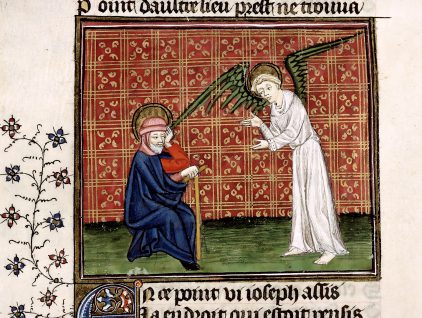 Point daultre lieu prest ne trouua
En ce point vi ioseph assis
La endroit qui estoit pensis